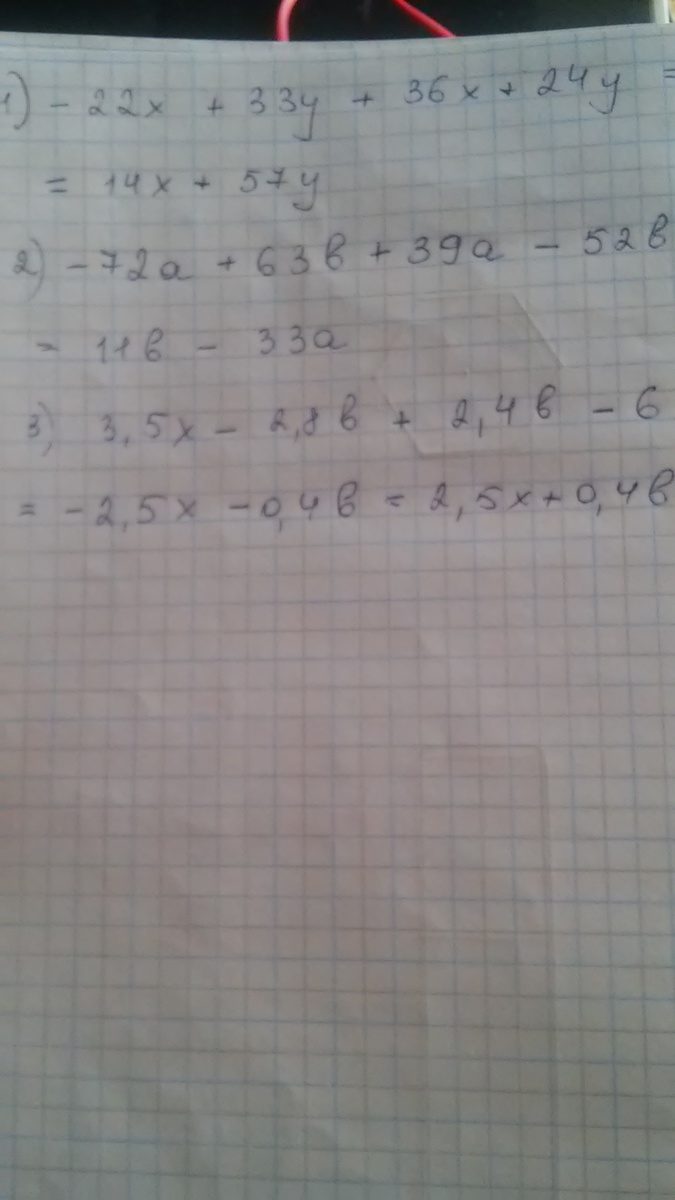 1) - 22x + 33y + 36x + 24y =
= 14x + 57y
2) - 72а + 63в + 39а - 52в
= 11в - 33а
3) 3,5x - 2,8в + 2,4в - 6
= -2,5x - 0,4в = 2,5x + 0,4в